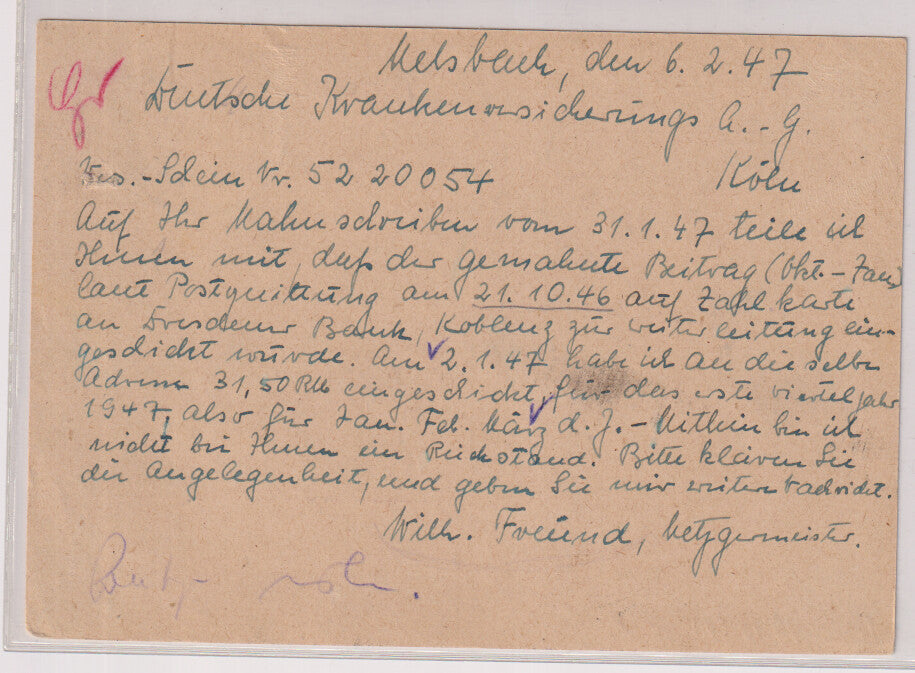 Melsbach, den 6. 2. 47
Deutsche Krankenversicherungs A.-G.
Vers.-Schein Nr. 52 20054 Köln
Auf Ihr Mahnschreiben vom 31.1.47 teile ich
Ihnen mit, daß der gemahnte Beitrag (Okt.-Jan)
laut Postquittung am 21.10.46 auf Zahlkarte
an Dresdener Bank, Koblenz zur Weiterleitung ein-
geschickt wurde. Am 2.1.47 habe ich an dieselbe
Adresse 31,50 RM eingeschickt, für das erste Vierteljahr
1947, also für Jan. Feb. März d. J. - Mithin bin ich
nicht bei Ihnen im Rückstand. Bitte klären Sie
die Angelegenheit, und geben Sie mir weitere Nachricht.
Wilh. Freund, Metzgermeister.